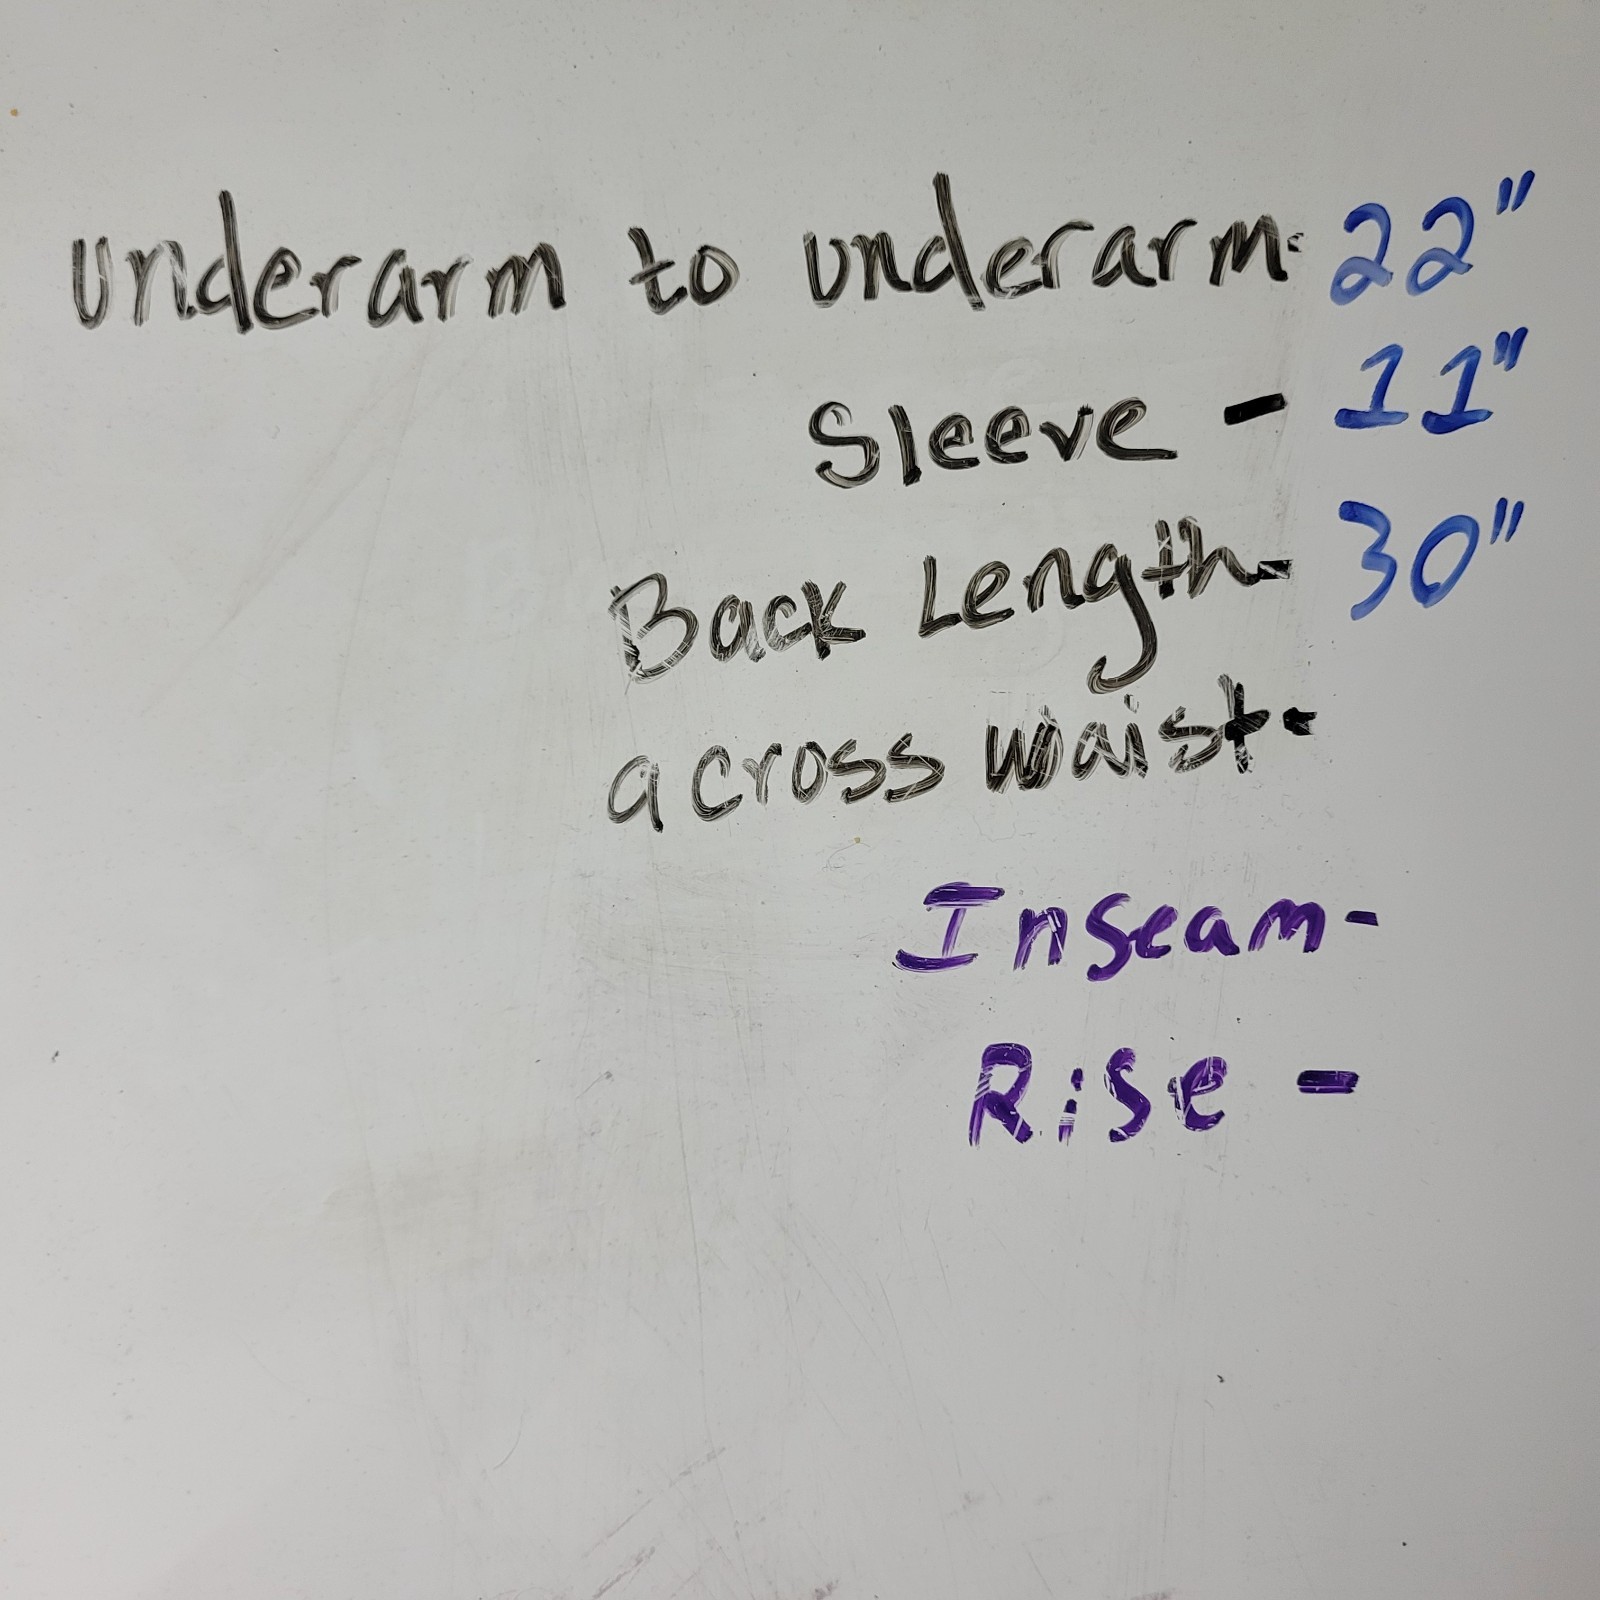 underarm to underarm- 22"
Sleeve - 11"
Back Length- 30"
across waist-
Inseam-
Rise -